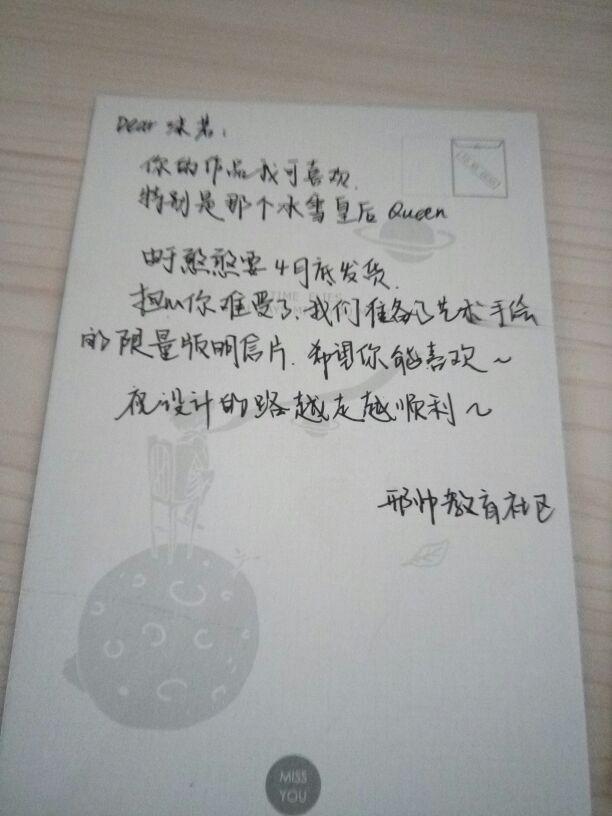 Dear 沐若：
你的作品我可喜欢.
特别是那个冰雪皇后 Queen
由于憨憨要4月底发货.
TIME FLIES
担心你难受了.我们准备了艺术手绘
的限量版明信片.希望你能喜欢～
祝设计的路越走越顺利～
邢帅教育社区
MISS
YOU